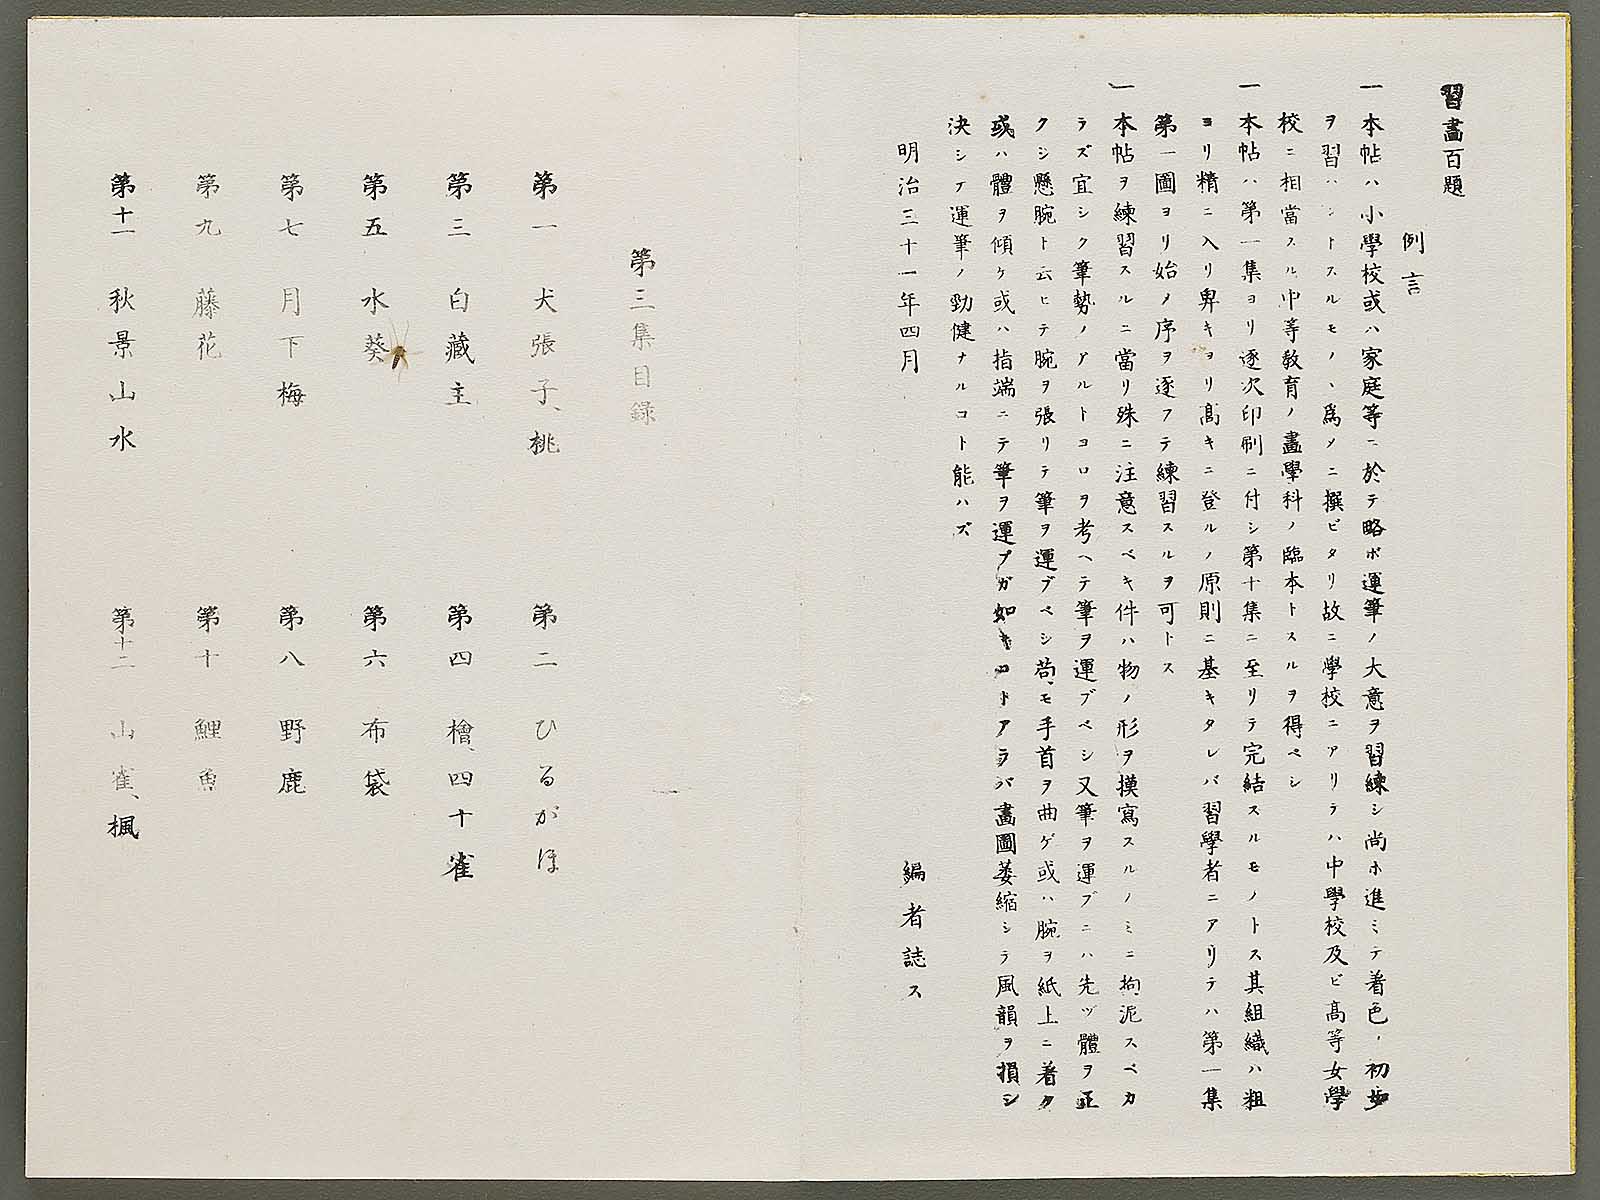 習畵百題
例言
一本帖ハ小學校或ハ家庭等ニ於テ略ボ運筆ノ大意ヲ習練シ尚ホ進ミテ着色ノ初歩
ヲ習ハントスルモノヽ爲メニ撰ビタリ故ニ學校ニアリテハ中學校及ビ高等女學
校ニ相當スル中等敎育ノ畵學科ノ臨本トスルヲ得ベシ
一本帖ハ第一集ヨリ逐次印刷ニ付シ第十集ニ至リテ完結スルモノトス其組織ハ粗
ヨリ精ニ入リ卑キヨリ高キニ登ルノ原則ニ基キタレバ習學者ニアリテハ第一集
第一圖ヨリ始ノ序ヲ逐フテ練習スルヲ可トス
一本帖ヲ練習スルニ當リ殊ニ注意スベキ件ハ物ノ形ヲ摸寫スルノミニ拘泥スベカ
ラズ宜シク筆勢ノアルトコロヲ考ヘテ筆ヲ運ブベシ又筆ヲ運ブニハ先ヅ體ヲ正
クシ懸腕ト云ヒテ腕ヲ張リテ筆ヲ運ブベシ苟モ手首ヲ曲ゲ或ハ腕ヲ紙上ニ着ケ
或ハ體ヲ傾ケ或ハ指端ニテ筆ヲ運ブガ如キコトアラバ畵圖萎縮シテ風韻ヲ損シ
決シテ運筆ノ勁健ナルコト能ハズ
明治三十一年四月
編者誌ス
第三集目錄
第一 犬張子、桃
第二 ひるがほ
第三 白藏主
第四 檜、四十雀
第五 水葵
第六 布袋
第七 月下梅
第八 野鹿
第九 藤花
第十 鯉魚
第十一 秋景山水
第十二 山雀、楓